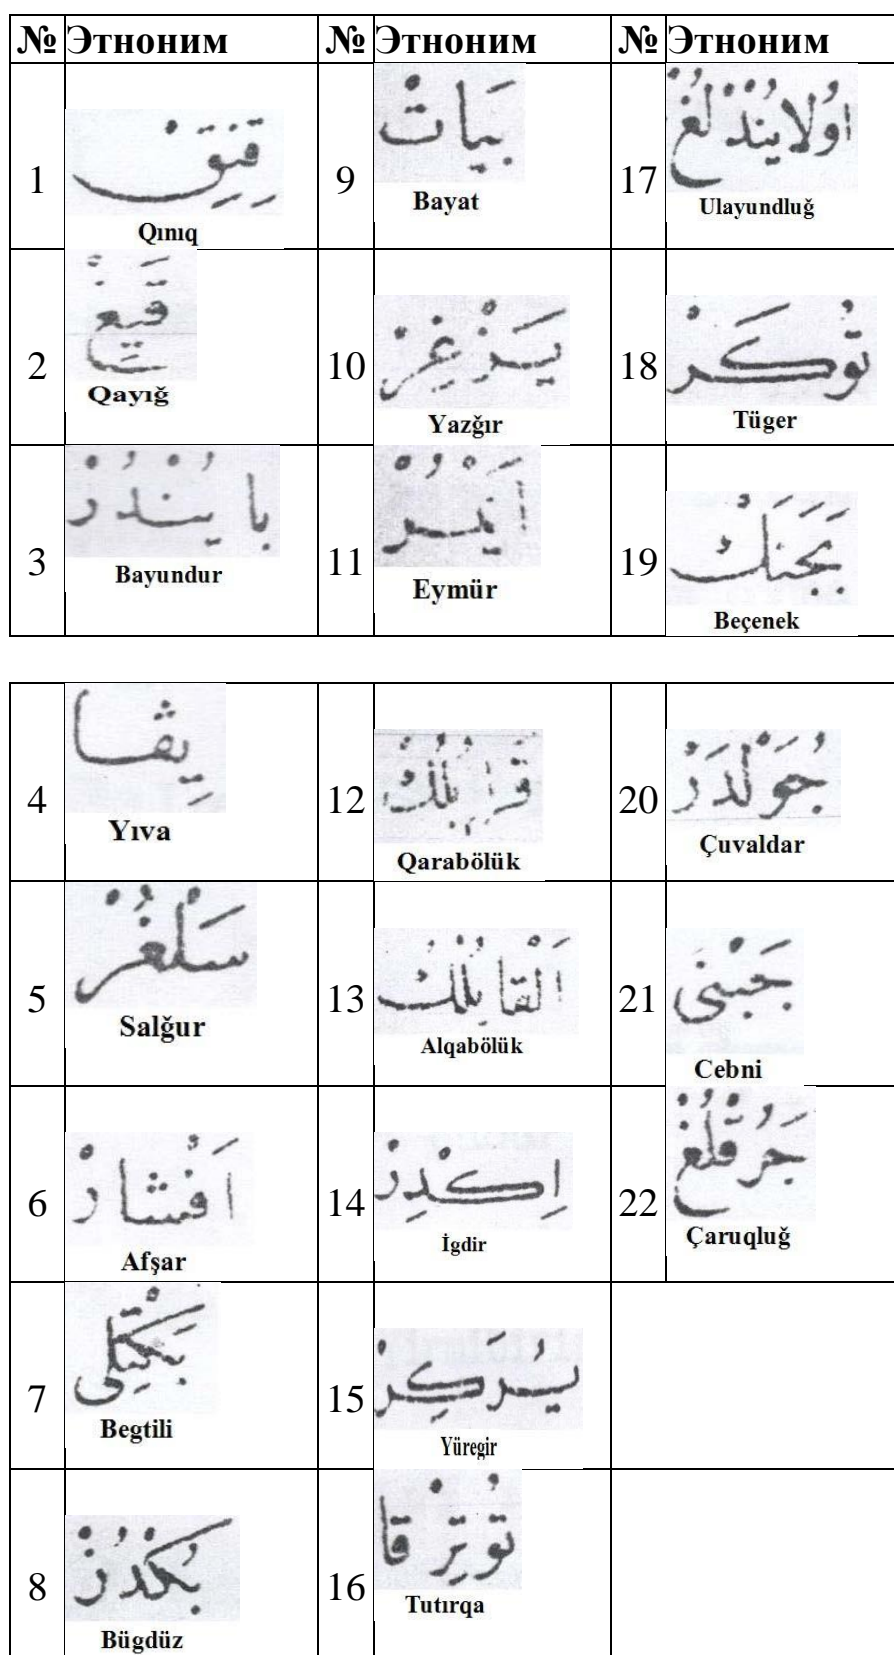 № Этноним № Этноним № Этноним
1 قِنِقْ Qınıq 9 بَياتْ Bayat 17 اوُلايُنْدْلُغْ Ulayundluğ
2 قَيِغْ Qayığ 10 يَزْغِرْ Yazğır 18 تُوكَرْ Tüger
3 بايُنْدُرْ Bayundur 11 اَيْمُرْ Eymür 19 بَجَنَكْ Beçenek
4 يِڤا Yıva 12 قَرابُلُكْ Qarabölük 20 جُوَلْدَرْ Çuvaldar
5 سَلْغُرْ Salğur 13 اَلْقابُلُكْ Alqabölük 21 جَبْنى Cebni
6 اَفْشارْ Afşar 14 اِكْدِرْ İgdir 22 جَرُقْلُغْ Çaruqluğ
7 بَكْتِلى Begtili 15 يُرَكِرْ Yüregir
8 بُكْدُزْ Bügdüz 16 تُوتِرْقا Tutırqa